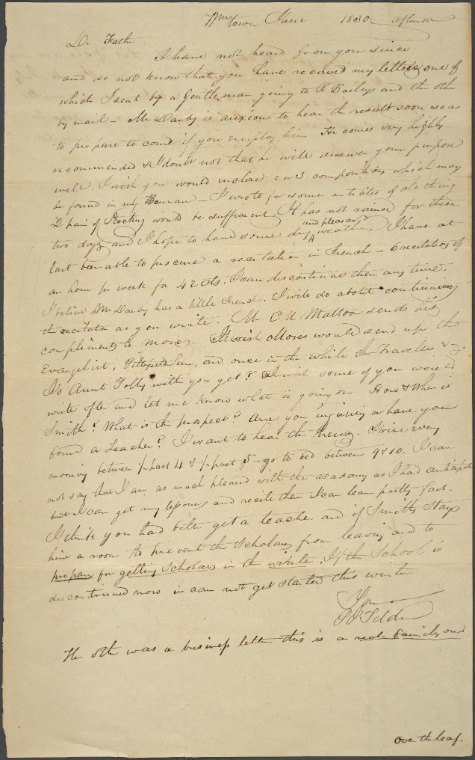 Wmstown June 1830 afternoon
Dr Fath
I have not heard from you since
and do not know that you have received my letters one of
which I sent by a Gentleman going to and the oth
by mail - Mr Darby is anxious to hear the result soon so as
to prepare to come if you employ him He comes very highly
recommended & I doubt not that he will answer your purpose
well. I wish you would inclose 2 or 3 compositions which may
be found in my Bureau - I wrote for some articles of clothing
2 pair of Stocking would be sufficient. It has not rained for these
two days and I hope to have some dry and pleasant weather I have at
last been able to procure a recitation in French - 5 recitations of
an hour pr week for 42 cts. I can discontinue them any time.
I believe Mr Darby has a little French. I will do about continuing
the recitation as you write. Mr C A Mattoo sends his
compliments to Moses. I wish Moses would send up the
Evangelist, and once in the while the Traveller &c
Is Aunt Polly with you yet? I wish some of you would
write often and let me know what is going on How & Who is
Smith? What is the prospect? Are you or have you
found a Teacher? I want to hear the I rise every
morning between ½ past 4 & ½ past 5 - go to bed between 9 & 10. I can
not say that I am as much pleased with the academy as I had anticipated
but I can get my lessons and recite them I can learn pretty fast.
I think you had bette get a teache and if Smith stays
hire a room to prevent the Scholars from leaving and to
prepare for getting Scholars in the winte If the School is
discontinued now it can not get started this winte
Your
The oth was a business lette this is a real family one
Ove the leaf.